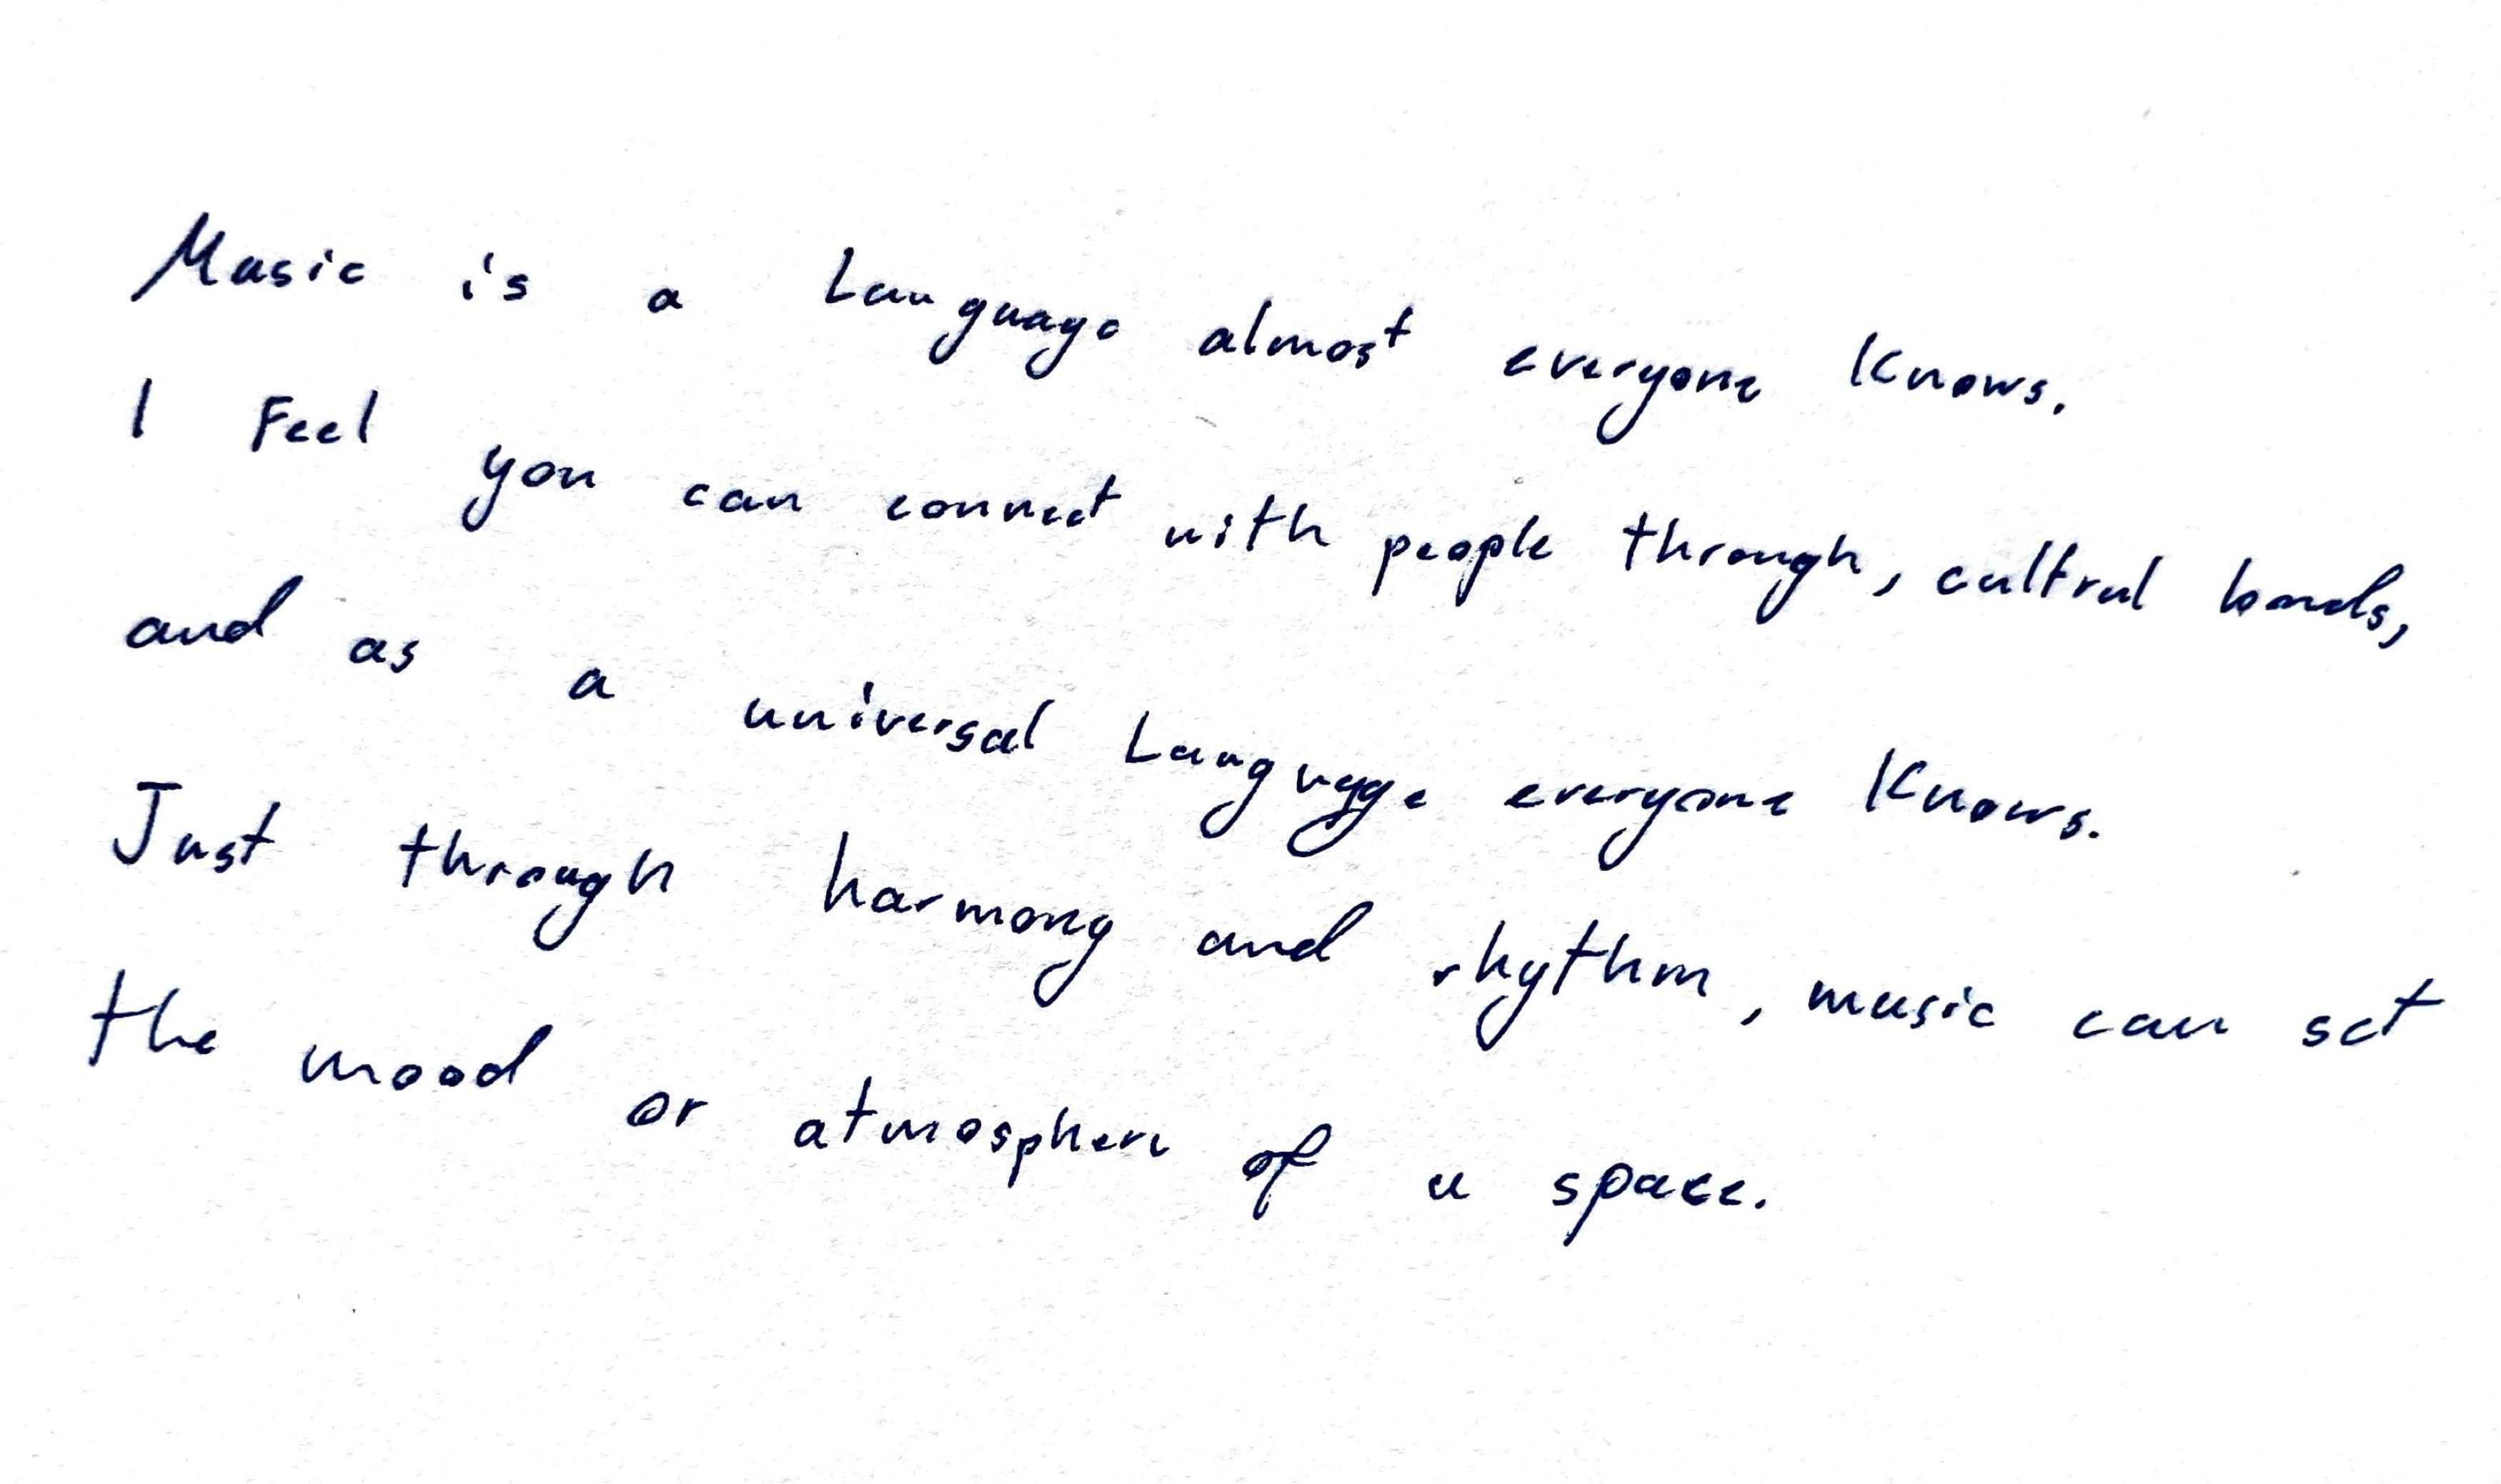 Music is a Language almost everyone Knows.
I Feel you can connect with people through, cultral bonds,
and as a universal Language everyone Knows.
Just through harmony and rhythm, music can set
the mood or atmosphere of a space.